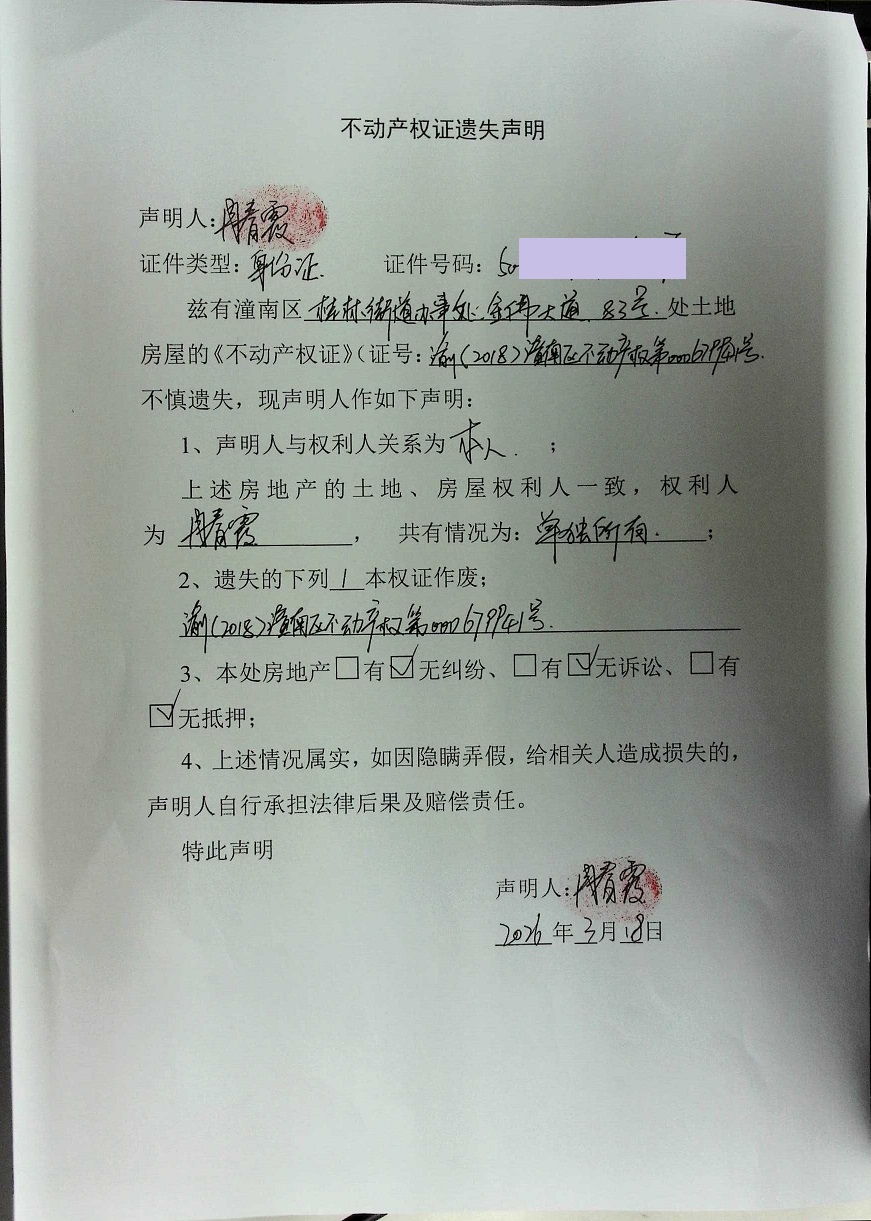 不动产权证遗失声明
声明人:周春霞
证件类型:身份证. 证件号码:50
兹有潼南区桂林街道办事处金佛大道83号.处土地
房屋的《不动产权证》(证号:渝(2018)潼南区不动产权第000679941号.
不慎遗失,现声明人作如下声明:
1、声明人与权利人关系为本人.;
上述房地产的土地、房屋权利人一致,权利人
为 周春霞,共有情况为:单独所有.;
2、遗失的下列1本权证作废;
渝(2018)潼南区不动产权第000679941号.
3、本处房地产□有☑无纠纷、□有☑无诉讼、□有
☑无抵押;
4、上述情况属实,如因隐瞒弄假,给相关人造成损失的,
声明人自行承担法律后果及赔偿责任。
特此声明
声明人:周春霞
2026年3月18日